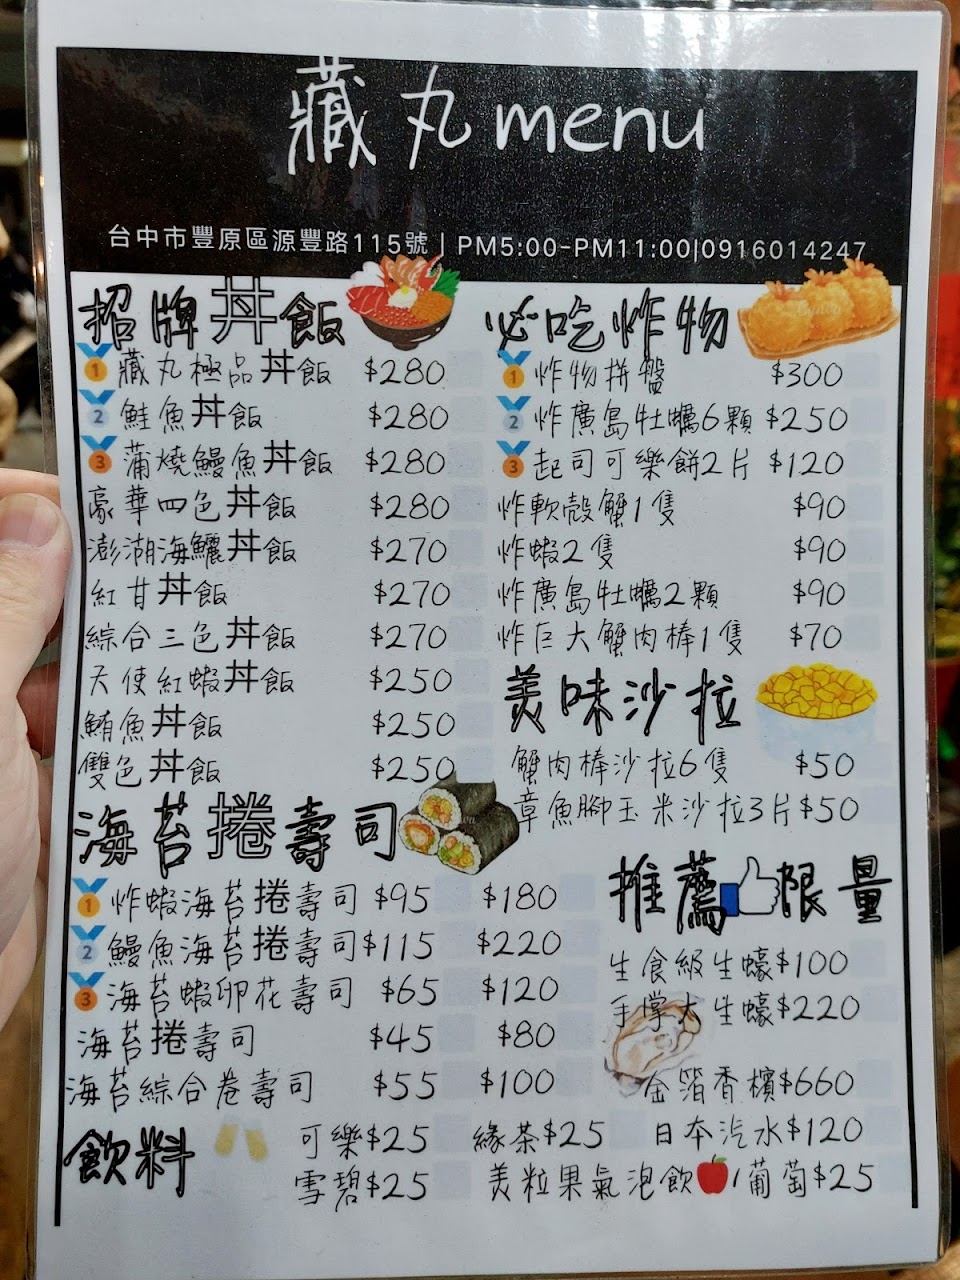 藏丸menu
台中市豐原區源豐路115號 | PM5:00-PM11:00|0916014247
招牌丼飯
1 藏丸極品丼飯 $280
2 鮭魚丼飯 $280
3 蒲燒鰻魚丼飯 $280
豪華四色丼飯 $280
澎湖海鱺丼飯 $270
紅甘丼飯 $270
綜合三色丼飯 $270
天使紅蝦丼飯 $250
鮪魚丼飯 $250
雙色丼飯 $250
海苔捲壽司
1 炸蝦海苔捲壽司 $95 $180
2 鰻魚海苔捲壽司 $115 $220
3 海苔蝦卵花壽司 $65 $120
海苔捲壽司 $45 $80
海苔綜合卷壽司 $55 $100
必吃炸物
1 炸物拼盤 $300
2 炸廣島牡蠣6顆 $250
3 起司可樂餅2片 $120
炸軟殼蟹1隻 $90
炸蝦2隻 $90
炸廣島牡蠣2顆 $90
炸巨大蟹肉棒1隻 $70
美味沙拉
蟹肉棒沙拉6隻 $50
章魚腳玉米沙拉3片 $50
推薦限量
生食級生蠔$100
手掌大生蠔$220
金箔香檳$660
飲料
可樂$25 緣茶$25 日本汽水$120
雪碧$25 美粒果氣泡飲/葡萄$25